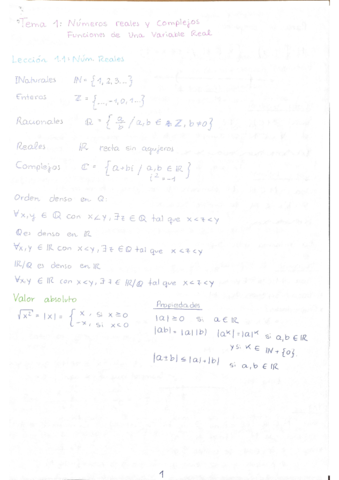 Tema 1: Números reales y Complejos
Funciones de Una Variable Real
Lección 1.1: Núm. Reales
Naturales ℕ = {1, 2, 3...}
Enteros ℤ = {..., -1, 0, 1...}
Racionales ℚ = {a/b / a, b ∈ ℤ, b≠0}
Reales ℝ recta sin agujeros
Complejos ℂ = {a+bi / a, b ∈ ℝ}
i² = -1
Orden denso en ℚ
∀x, y ∈ ℚ con x<y, ∃ z ∈ ℚ tal que x<z<y
ℚ es denso en ℝ
∀x, y ∈ ℝ con x<y, ∃ z ∈ ℚ tal que x<z<y
ℝ/ℚ es denso en ℝ
∀x, y ∈ ℝ con x<y, ∃ z ∈ ℝ/ℚ tal que x<z<y
Valor absoluto
√x² = |x| = { x, si x≥0
-x, si x<0
Propiedades
|a| ≥ 0 si a ∈ ℝ
|ab| = |a||b| |aᵏ| = |a|ᵏ si a, b ∈ ℝ
y si k ∈ ℕ + {0}
|a+b| ≤ |a|+|b| si a, b ∈ ℝ
1